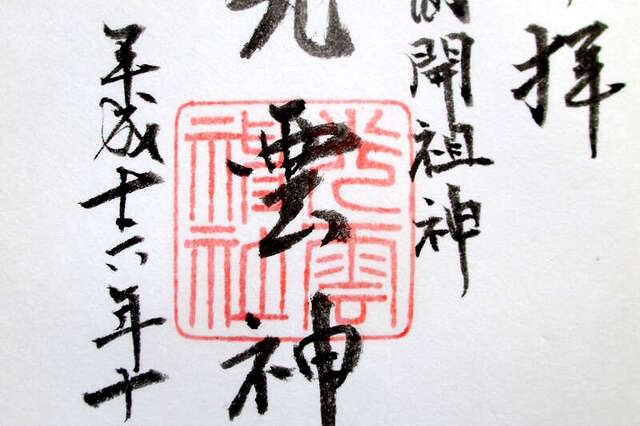 拝
開祖神
光雲神
平成十六年十
光雲
神社